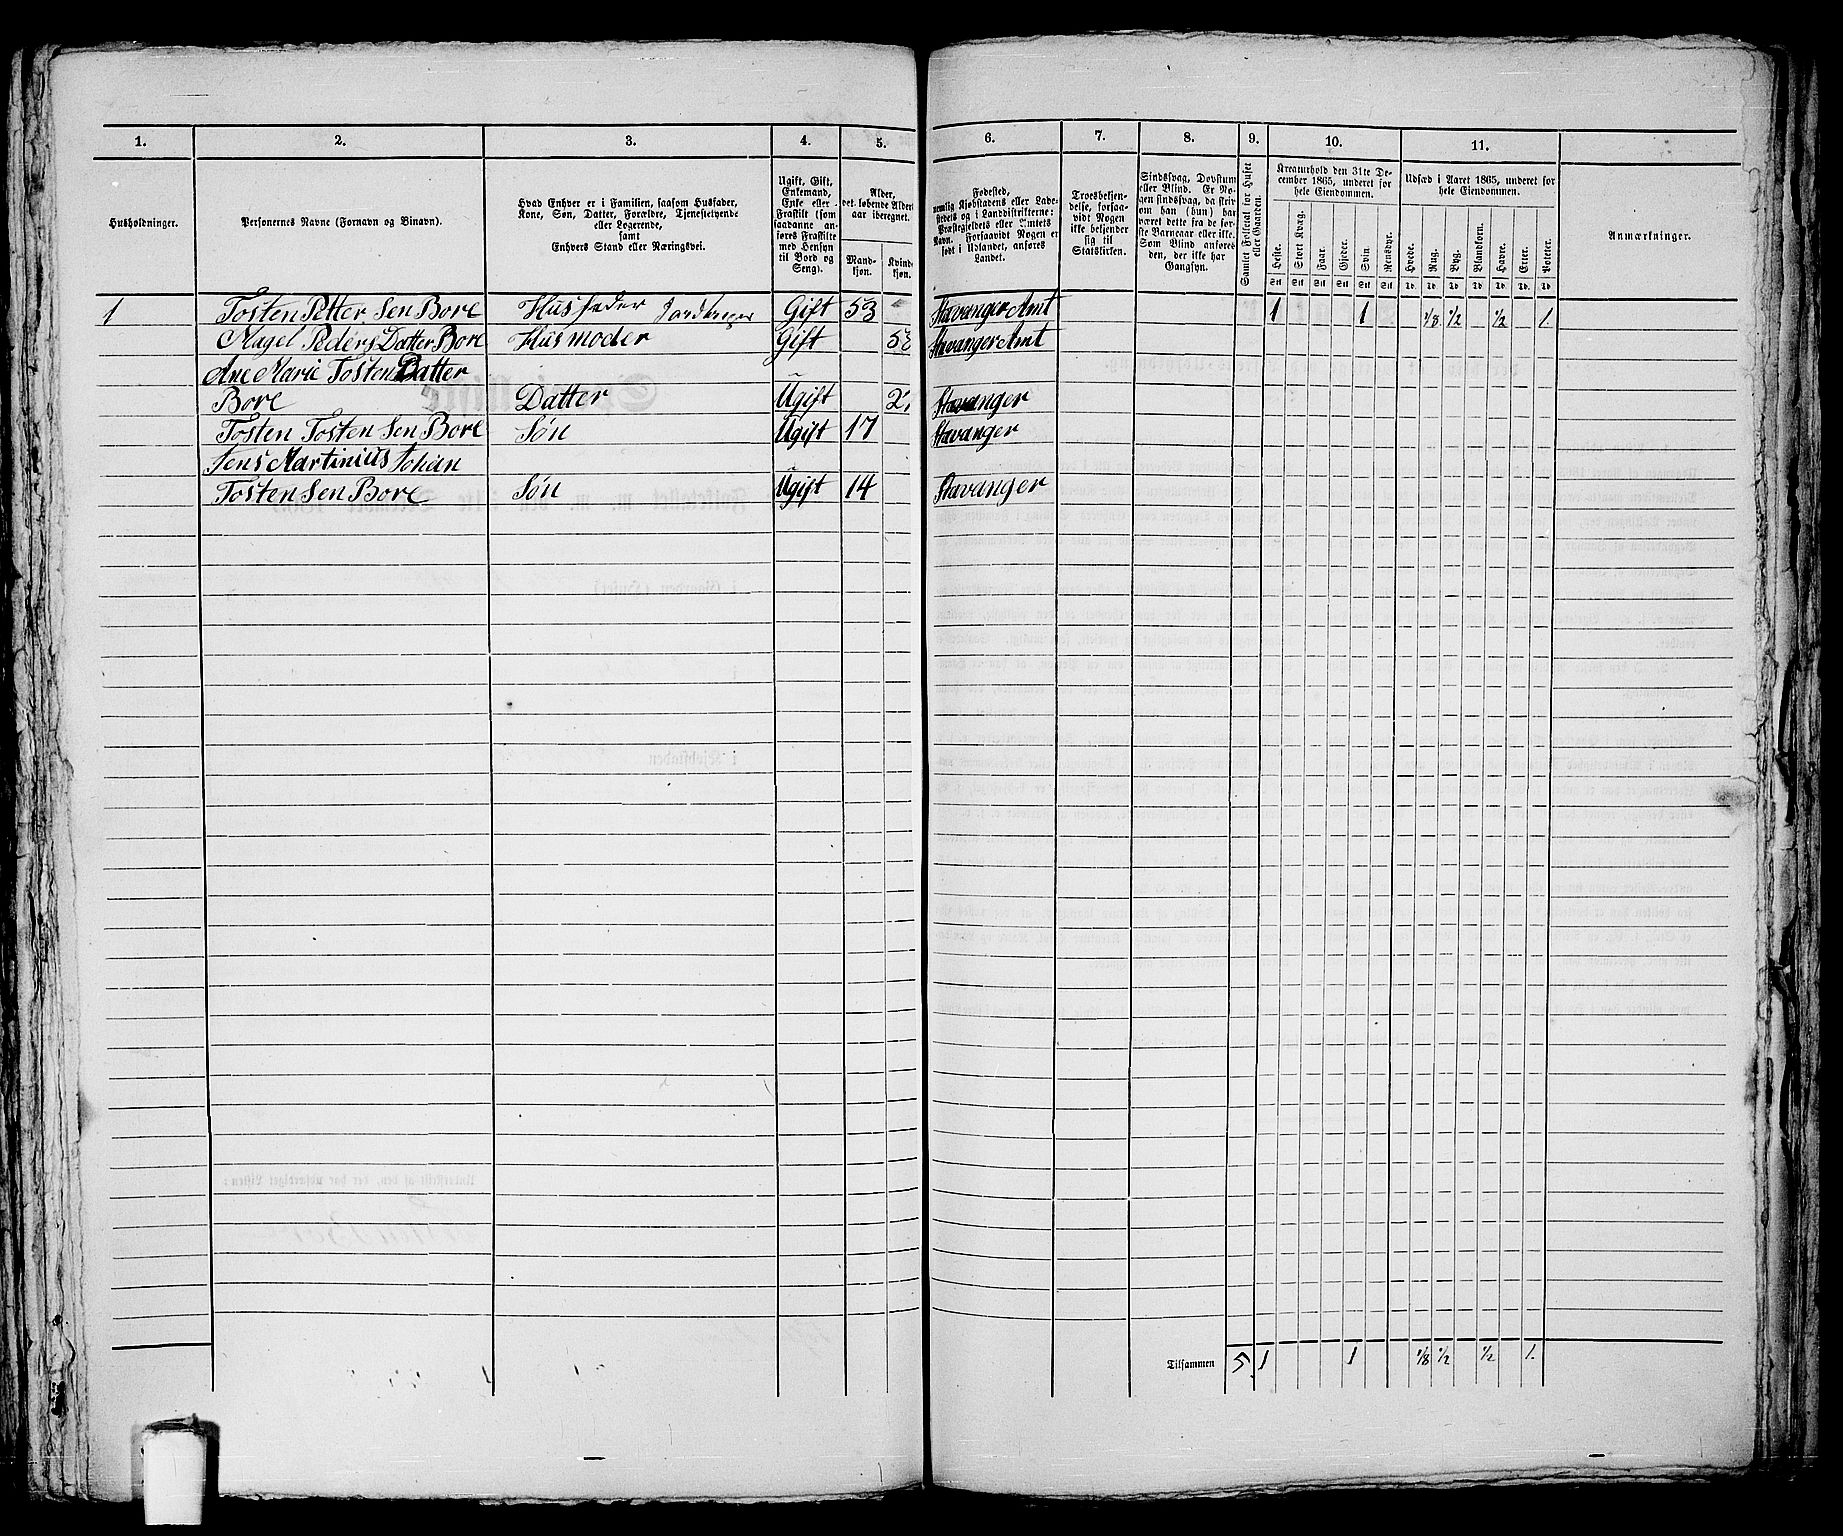 1. 2. 3. 4. 5. 6. 7. 8. 9. 10. 11.
Husholdninger.
Personernes Navne (Fornavn og Binavn).
Hvad Enhver er i Familien, saasom Husfader,
Kone, Søn, Datter, Forældre, Tjenestetyende
eller Logerende,
samt
Enhvers Stand eller Næringsvei.
Ugift, Gift,
Enkemand,
Enke eller
Fraskilt (som
saadanne an-
føres Fraskilte
med Hensyn
til Bord og
Seng).
Alder,
det løbende Alders-
aar iberegnet.
Mand-
kjøn.
Kvind-
kjøn.
Fødested,
nemlig Kjøbstadens eller Lade-
stedets og i Landdistrikterne:
Præstegjeldets eller Amtets
Navn. Forsaavidt Nogen er
født i Udlandet, anføres
Landet.
Troesbekjen-
delse, forsaa-
vidt Nogen
ikke bekjender
sig til
Statskirken.
Sindssvag, Døvstum
eller Blind. Er No-
gen sindssvag, da skriv
om han (hun) har
været dette fra de før-
ste Barneaar eller ikke.
Som Blind anføres
den, der ikke har
Gangsyn.
Samlet Folketal for Huset
eller Gaarden.
Kreaturhold den 31te De-
cember 1865, underet for
hele Eiendommen.
Heste. Stort Kvæg. Faar. Gjeder. Svin. Rensdyr.
Udsæd i Aaret 1865, underet for
hele Eiendommen.
Hvede. Rug. Byg. Blandkorn. Havre. Erter. Poteter.
Anmærkninger.
Stk Stk Stk Stk Stk Stk Td. Td. Td. Td. Td. Td. Td.
1 Tosten Petter Sen Bore Husfader Gift 53 Stavanger Amt 1 1 1/8 1/2 1/2 1.
Peders Datter Bore Husmoder Gift Stavanger Amt
Ane Marie Tosten Datter
Bore Datter Ugift Stavanger
Tosten Tosten Sen Bore Søn Ugift 17 Stavanger
Jens Martinius Johan
Tosten Sen Bore Søn Ugift 14 Stavanger
Tilsammen 5. 1 1 1/8 1/2 1/2 1.